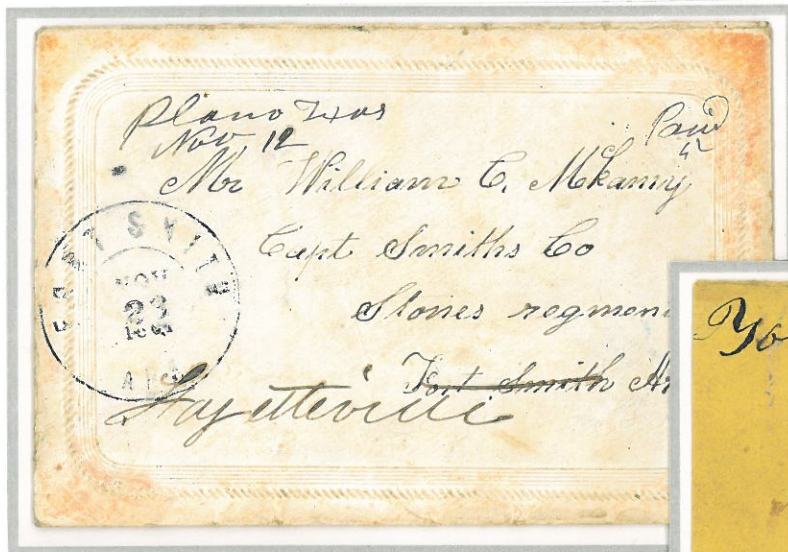 Plano Texas
Nov, 12
Paid
5
Mr William C. McKamy
Capt Smiths Co
Stones regmen
Fort Smith Ar
Fayetteville
NOV
23
ARK
Yo